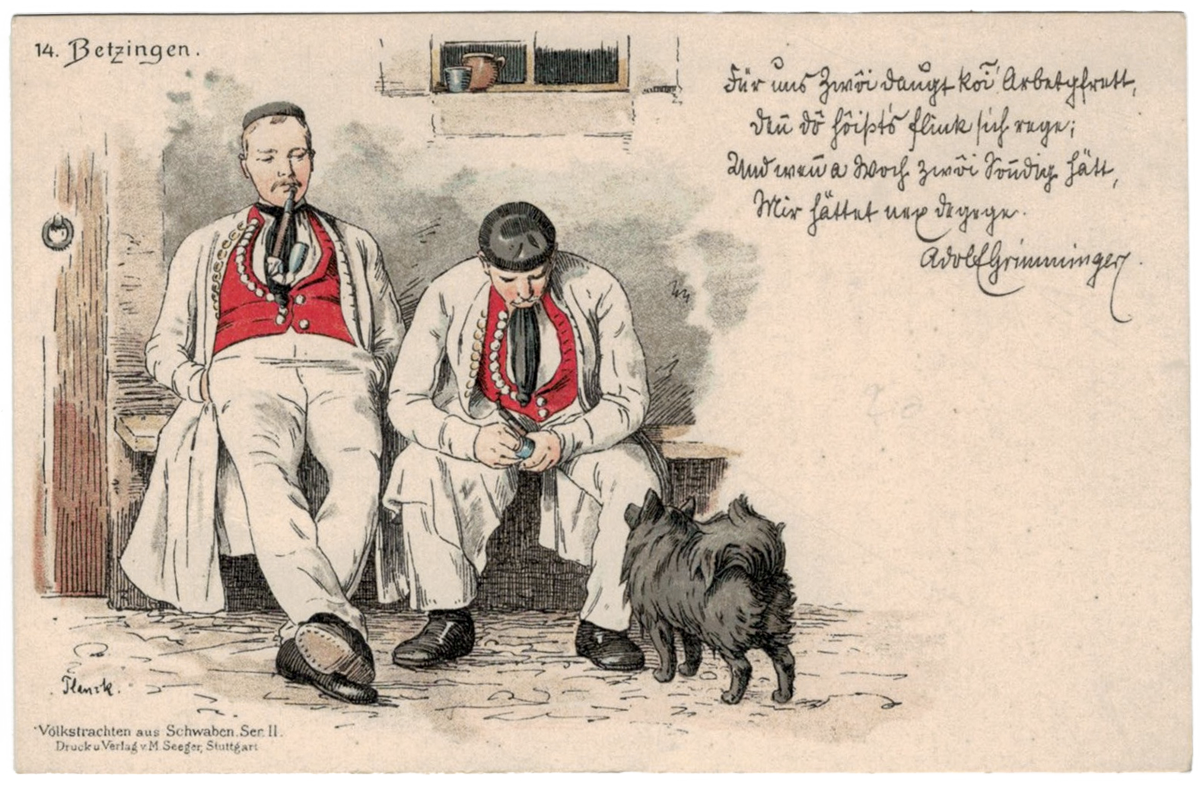 14. Betzingen.
Für uns Zwöi daugt koi͂ Arbetgfrett,
deñ dö höißt's flink sich rege;
Und weñ a Woch zwöi Soñdig hätt,
Mir hättet nex degege.
Adolf Grimminger.
Flenrk.
Volkstrachten aus Schwaben. Ser. II.
Druck u Verlag v. M. Seeger, Stuttgart